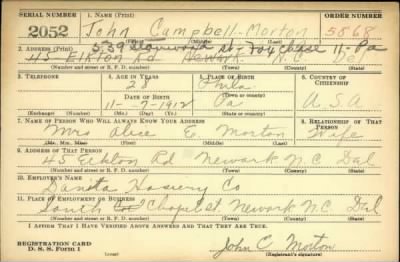 SERIAL NUMBER 1. NAME (Print) ORDER NUMBER
2052 John Campbell Morton 5868
(First) (Middle) (Last)
539 St - Chase 11- Pa
2. ADDRESS (Print)
45 Elkton Rd Newark N.C. Del
(Number and street or R. F. D. number) (Town) (County) (State)
3. TELEPHONE 4. AGE IN YEARS 5. PLACE OF BIRTH 6. COUNTRY OF CITIZENSHIP
28 Phila
DATE OF BIRTH (Town or county)
11- -7-1912 Pa U.S.A
(Exchange) (Number) (Mo.) (Day) (Yr.) (State or country)
7. NAME OF PERSON WHO WILL ALWAYS KNOW YOUR ADDRESS 8. RELATIONSHIP OF THAT PERSON
Mrs Alice E. Morton Wife
(Mr., Mrs., Miss) (First) (Middle) (Last)
9. ADDRESS OF THAT PERSON
45 Elkton Rd Newark N.C. Dal
(Number and street or R. F. D. number) (Town) (County) (State)
10. EMPLOYER'S NAME
Danita Hosiery Co
11. PLACE OF EMPLOYMENT OR BUSINESS
South Chapel st Newark N.C. Dal
(Number and street or R. F. D. number) (Town) (County) (State)
I AFFIRM THAT I HAVE VERIFIED ABOVE ANSWERS AND THAT THEY ARE TRUE.
REGISTRATION CARD
D. S. S. Form 1 (over) John C Morton
(Registrant's signature)